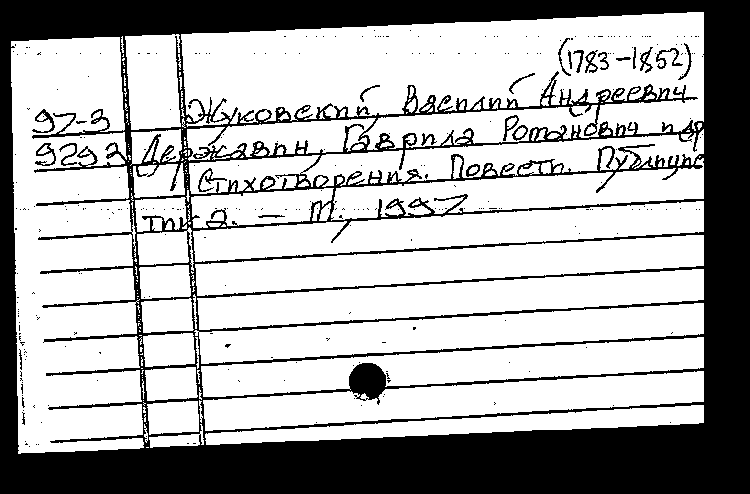 (1783-1852)
97-3 Жуковский, Василий Андреевич
9293 Державин, Гаврила Романович и др
Стихотворения. Повести. Публицис
тика. — М., 1997.